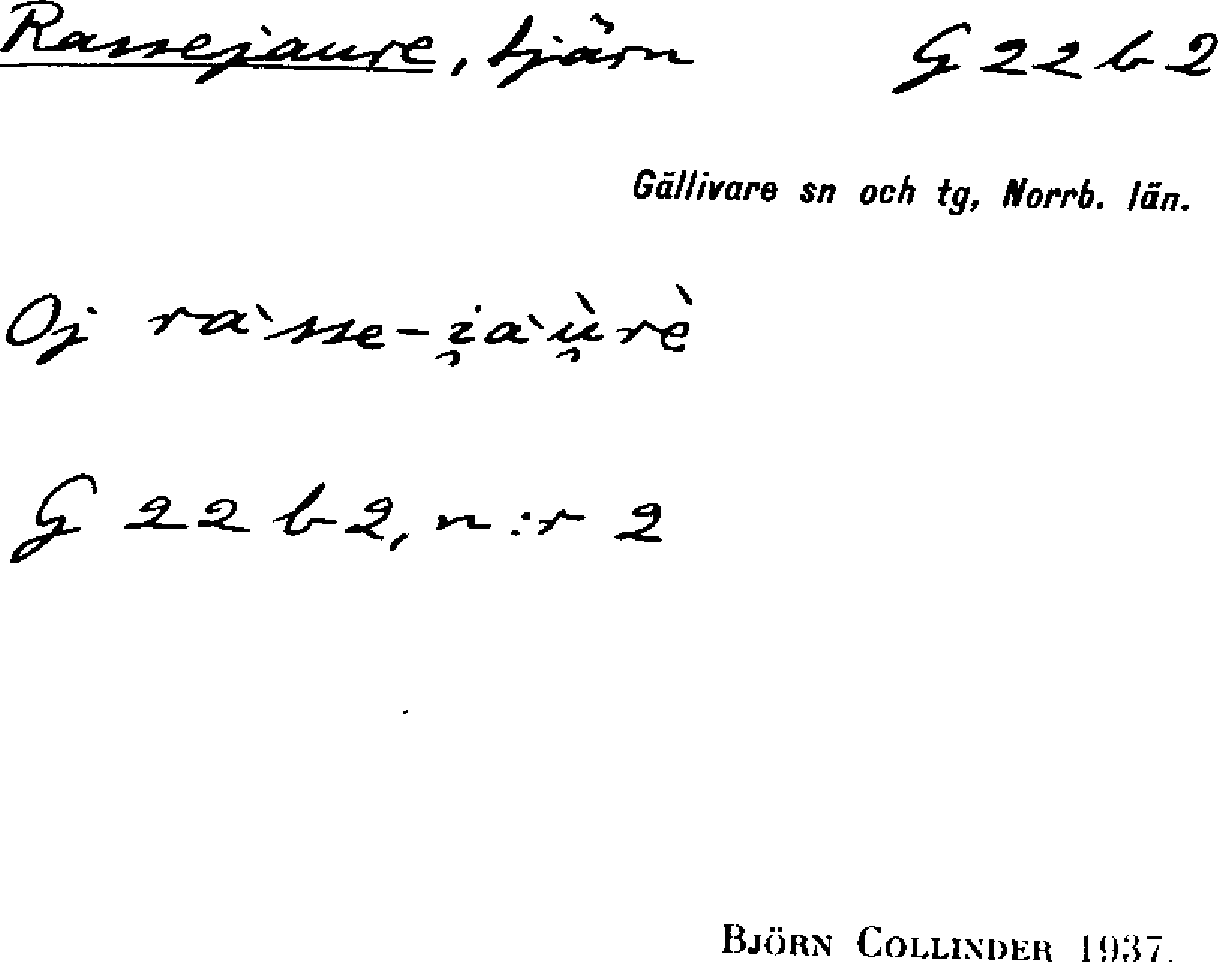 Rassejaure, tjärn G 22 b 2
Gällivare sn och tg, Norrb. län.
Oj ràsse-i̯àù̯rè
G 22 b 2, n:r 2
BJÖRN COLLINDER 1937.